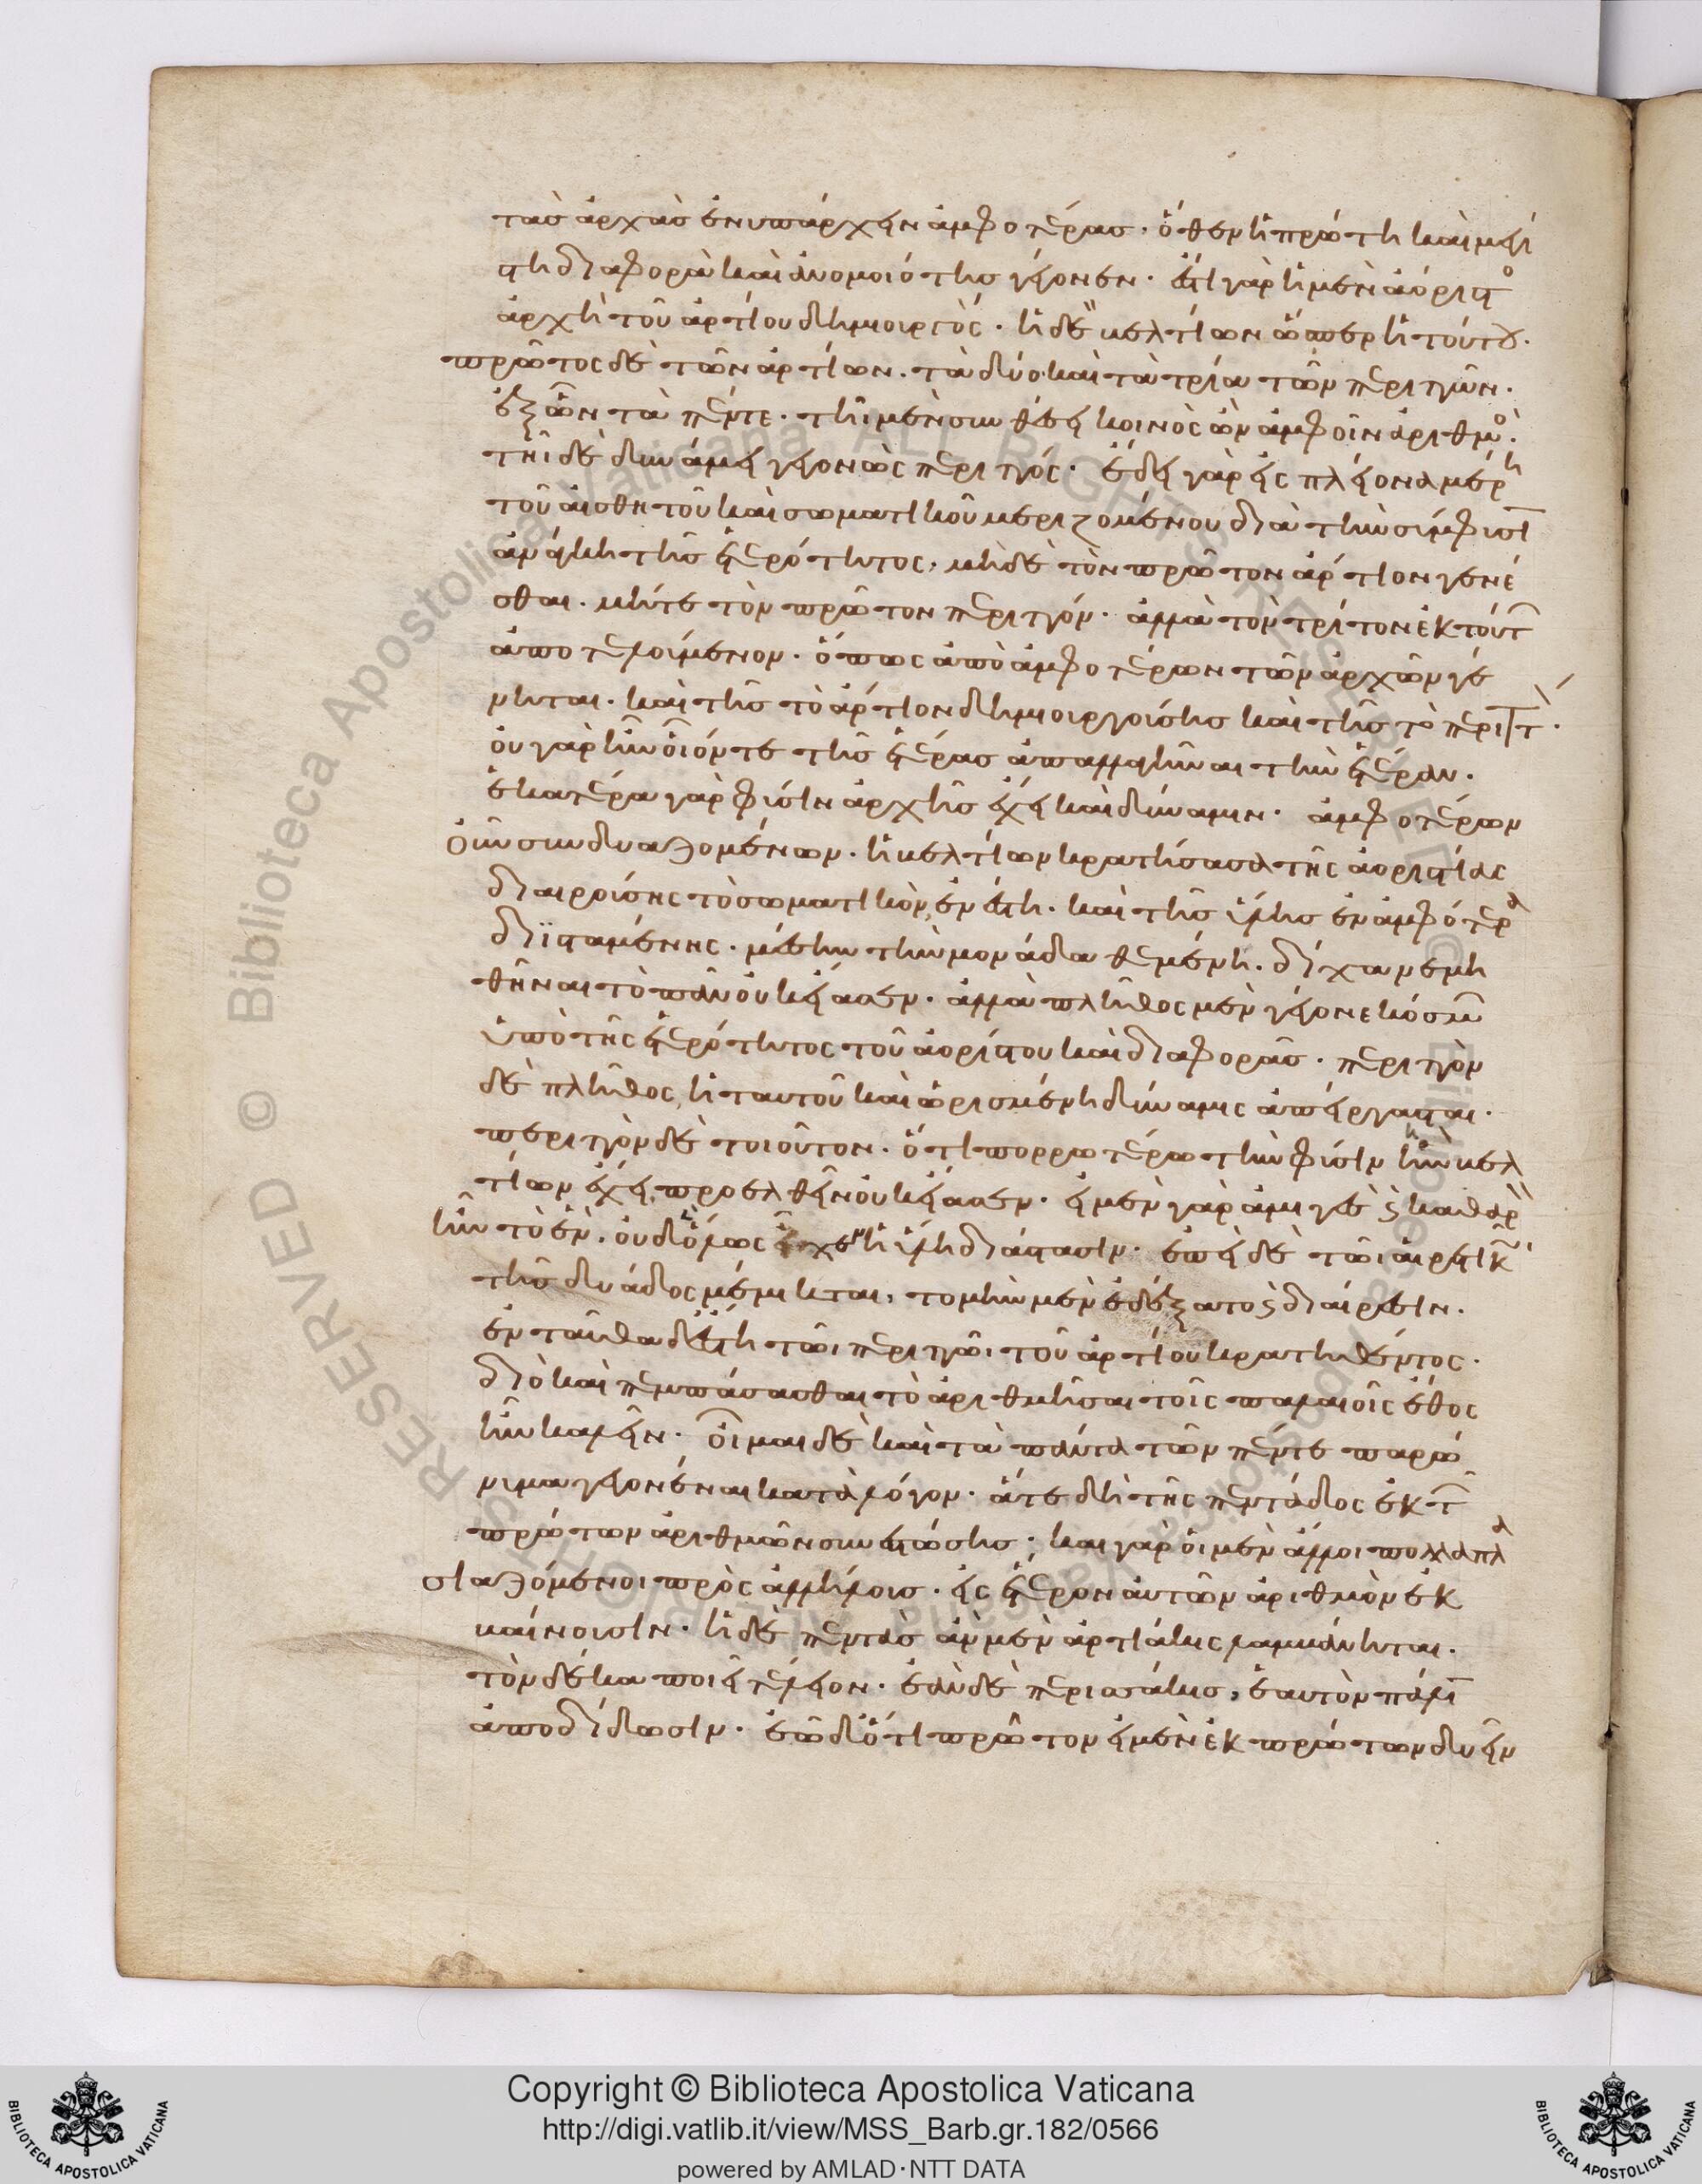 τὰσ ἀρχὰσ ἐνυπάρχειν ἀμφοτέρασ· ὅθεν ἡ πρώτη καὶ μεγί
στη διαφορὰ καὶ ἀνομοιότησ γέγονεν· ἔστι γὰρ ἡ μὲν ἀόριστ
ἀρχὴ τοῦ ἀρτίου δημιουργός· ἡ δὲ βελτίων ὥσπερ ἡ τούτου·
πρῶτος δὲ τῶν ἀρτίων· τὰ δύο καὶ τὰ τρία τῶν περιττῶν·
ἐξ ὧν τὰ πέντε· τῆι μὲν συνθέσει κοινὸς ὢν ἀμφοῖν ἀριθμό·
τῆι δὲ δυνάμει γεγονὼς περιττός· ἔδει γὰρ εἰς πλείονα μέρη
τοῦ αἰσθητοῦ καὶ σωματικοῦ μεριζομένου διὰ τὴν σύμφυτ
ἀνάγκη τῆσ ἑτερότητος· μὴ δὲ τὸν πρῶτον ἄρτιον γενέ
σθαι· μήτε τὸν πρῶτον περιττόν· ἀλλὰ τὸν τρίτον ἐκ τούτ
ἀποτελούμενον· ὅπως ἀπὸ ἀμφοτέρων τῶν ἀρχῶν γέ
νηται· καὶ τῆσ τὸ ἄρτιον δημιουργούσησ καὶ τῆσ τὸ περιττ·
οὐ γὰρ ἦν οἷόν τε τῆσ ἑτέρασ ἀπαλλαγῆναι τὴν ἑτέραν·
ἑκατέρα γὰρ φύσιν ἀρχῆσ ἔχει καὶ δύναμιν· ἀμφοτέρων
οὖν συνδυαζομένων· ἡ βελτίων κρατήσασα τῆς ἀοριστίας
διαιρούσης τὸ σωματικὸν, ἐνέστη· καὶ τῆσ ὕλησ ἐν ἀμφότερα
διϊσταμένης· μέσην τὴν μονάδα θεμένη· δίχα νεμη
θῆναι τὸ πᾶν οὐκ εἴασεν· ἀλλὰ πλῆθος μὲν γέγονε κόσμ
ὑπὸ τῆς ἑτερότητος τοῦ ἀορίστου καὶ διαφορᾶσ· περιττὸν
δὲ πλῆθος, ἡ ταυτοῦ καὶ ὡρισμένη δύναμις ἀπείργασται·
περιττὸν δὲ τοιοῦτον· ὅτι πορρωτέρω τὴν φύσιν ἢ ὡσ βέλ
τιον ἔχει, προελθεῖν οὐκ εἴασεν· εἰ μὲν γὰρ ἀμιγὲς καὶ καθαρὸ
ἦν τὸ ἕν· οὐδ' ὅλως εἶχεν ἡ ὕλη διάστασιν· ἐπεὶ δὲ τῶι αἱρετικ
τῆσ δυάδος μέμικται, τομὴν μὲν ἐδέξατο καὶ διαίρεσιν·
ἐνταῦθα δ' ἔστη τῶι περιττῶι τοῦ ἀρτίου κρατηθέντος·
διὸ καὶ πεμπάσασθαι τὸ ἀριθμῆσαι τοῖς παλαιοῖς ἔθος
ἦν καλεῖν· οἶμαι δὲ καὶ τὰ πάντα τῶν πέντε παρώ
νυμα γεγονέναι κατὰ λόγον· ἅτε δὴ τῆς πεντάδος ἐκ τ
πρώτων ἀριθμῶν συνεστώσησ· καὶ γὰρ οἱ μὲν ἄλλοι πολλαπλα
σιαζόμενοι πρὸς ἀλλήλουσ· εἰς ἕτερον αὐτῶν ἀριθμὸν ἐκ
βαίνουσιν· ἡ δὲ πεντὰσ ἂν μὲν ἀρτιάκις λαμβάνηται·
τὸν δέκα ποιεῖ τέλειον· ἐὰν δὲ περισσάκισ, ἑαυτὸν πάλι
ἀποδίδωσιν· ἐῶ δ' ὅτι πρῶτον εἰ μὲν ἐκ πρώτων δυεῖν